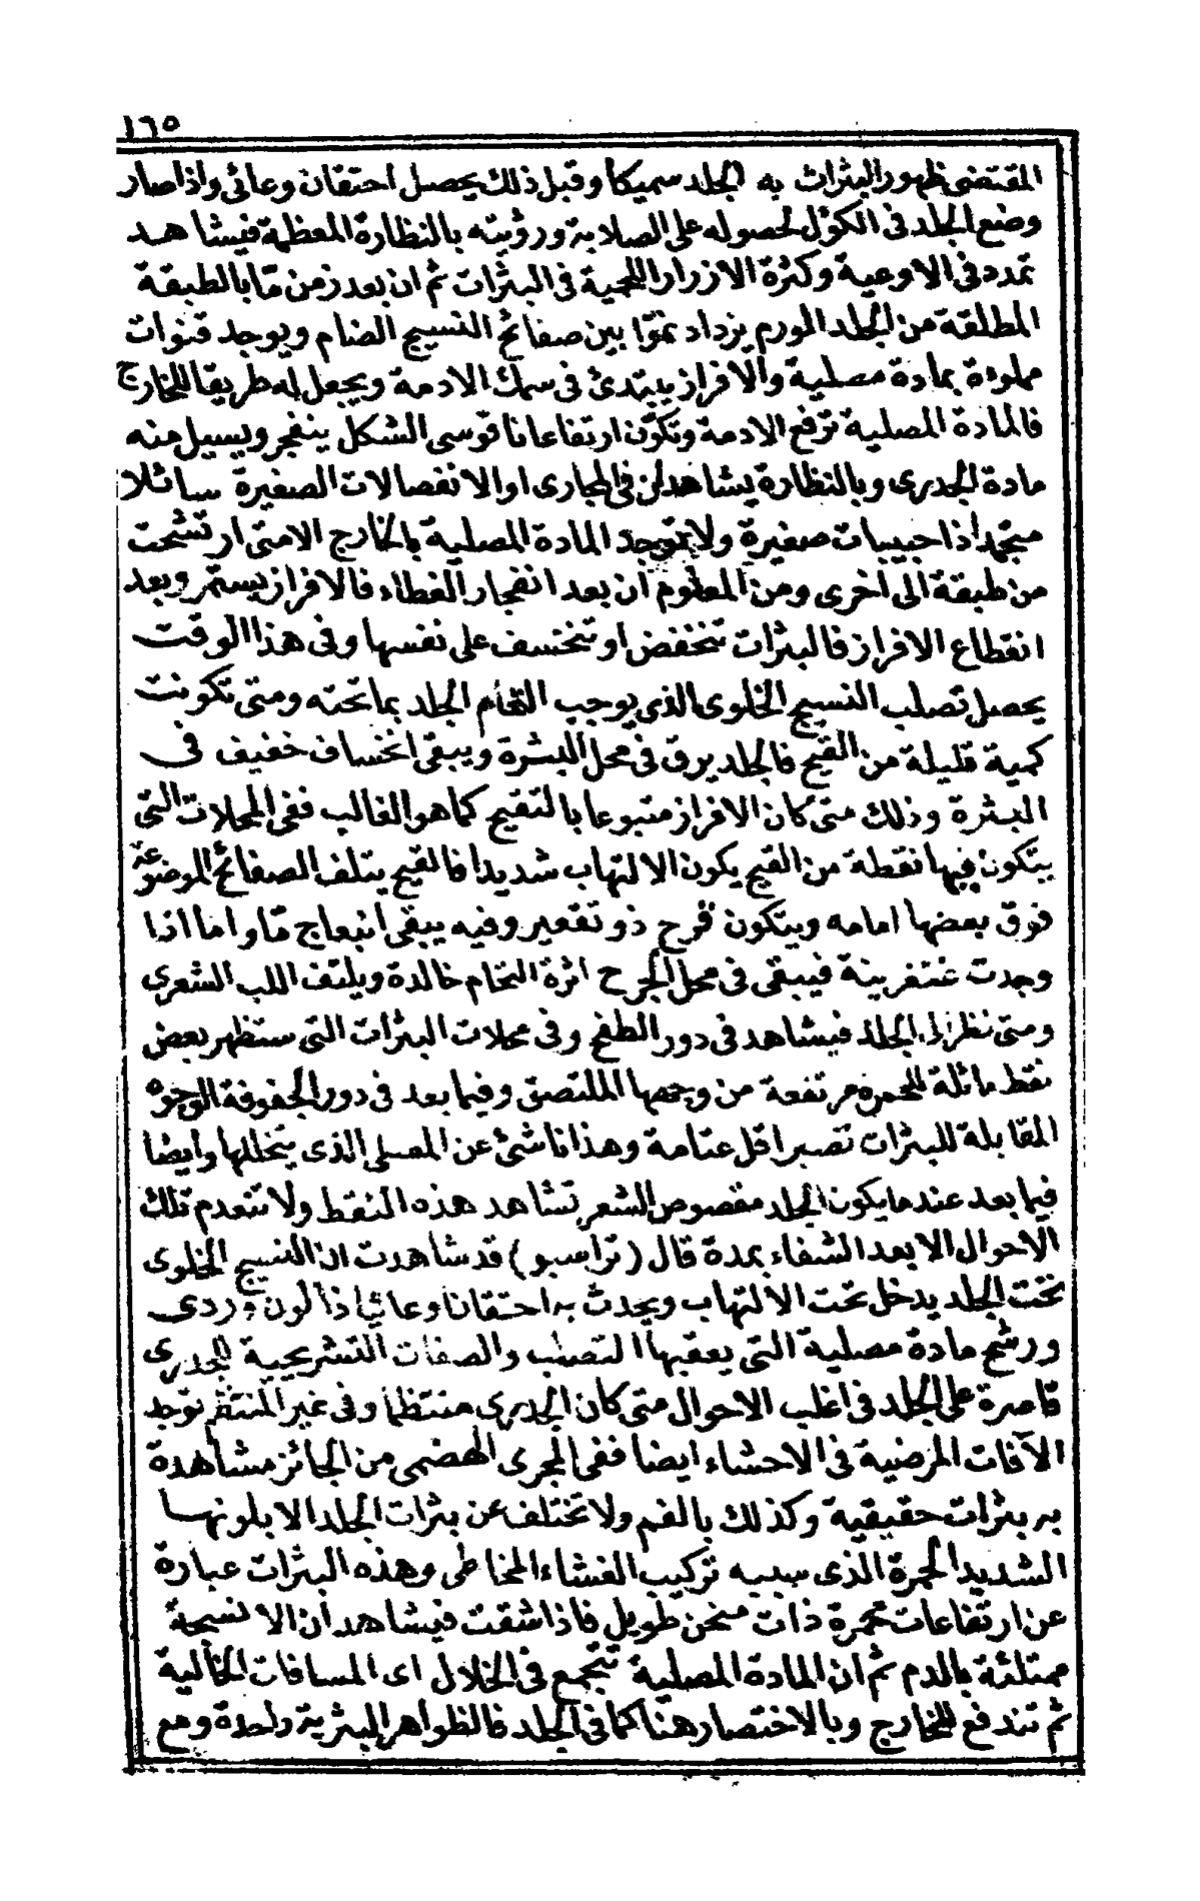 ١٦٥
المقتضى ظهور البثرات به الجلد سميكا وقبل ذلك يحصل احتقان وعائى واذا صار
وضع الجلد فى الكؤل لحصوله على الصلابة ورؤيته بالنظارة المعظمة فيشاهد
تمدد فى الاوعية وكثرة الازرار اللحمية فى البثرات ثم ان بعد زمن مّا بالطبقة
المطلقة من الجلد المورم يزداد نموّا بين صفائح النسيج الضام ويوجد قنوات
مملوءة بمادة مصلية والافراز يبتدئ فى سمك الادمة ويجعل له طريقا للخارج
فالمادة المصلية ترفع الادمة وتكوّن ارتفاعانا قوسى الشكل ينفجر ويسيل منه
مادة الجدرى وبالنظارة يشاهد ان فى المجارى او الانفصالات الصغيرة سائلا
متجمدا ذا حبيبات صغيرة ولا توجد المادة المصلية بالخارج الا متى ارتشحت
من طبقة الى اخرى ومن المعلوم ان بعد انفجار الغطاء فالافراز يستمر وبعد
انقطاع الافراز فالبثرات تنخفض او تنخسف على نفسها وفى هذا الوقت
يحصل تصلب النسيج الخلوى الذى يوجب التقام الجلد بما تحته ومتى تكونت
كمية قليلة من القيح فالجلد يرق فى محل البشرة ويبقى انخساف خفيف فى
البثرة وذلك متى كان الافراز متبوعا بالتقيح كما هو الغالب ففى المحلات التى
يتكون فيها نقطة من القيح يكون الالتهاب شديدا فالقيح يتلف الصفائح الموضوعة
فوق بعضها امامه ويتكون قرح ذو تقعير وفيه يبقى انبعاج مّا واما اذا
وجدت غنغرينة فيبقى فى محل الجرح اثرة التحام خالدة ويلتف اللب الشعرى
ومتى نظر الى الجلد فيشاهد فى دور الطفح وفى محلات البثرات التى ستظهر بعض
نقط مائلة للحمرة مرتفعة من وجهها الملتصق وفيما بعد فى دور الجفوفة الوجوه
المقابلة للبثرات تصير اقل عتامة وهذا ناشئ عن المصلى الذى يتخللها وايضا
فيما بعد عند ما يكون الجلد مقصوص الشعر تشاهد هذه النقط ولا تنعدم تلك
الاحوال الا بعد الشفاء بمدة قال (تراسبو) قد شاهدت ان النسيج الخلوى
تحت الجلد يدخل تحت الالتهاب ويحدث به احتقانا وعائيا ذا لون وردى
ورشح مادة مصلية التى يعقبها التصلب والصفات التشريحية للجدرى
قاصرة على الجلد فى اغلب الاحوال متى كان الجدرى منتظما وفى غير المنتظم توجد
الآفات المرضية فى الاحشاء ايضا ففى المجرى الهضمى من الجائز مشاهدة
بر بثرات حقيقية وكذلك بالفم ولا تختلف عن بثرات الجلد الا بلونها
الشديد الحمرة الذى سببه تركيب الغشاء المخاطى وهذه البثرات عبارة
عن ارتفاعات محمرة ذات منحن طويل فاذا شقت فيشاهد ان الانسجة
ممتلئة بالدم ثم ان المادة المصلية تتجمع فى الخلال اى المسافات الخالية
ثم تندفع للخارج وبالاختصار هنا كما فى الجلد فالظواهر البثرية واحدة ومع